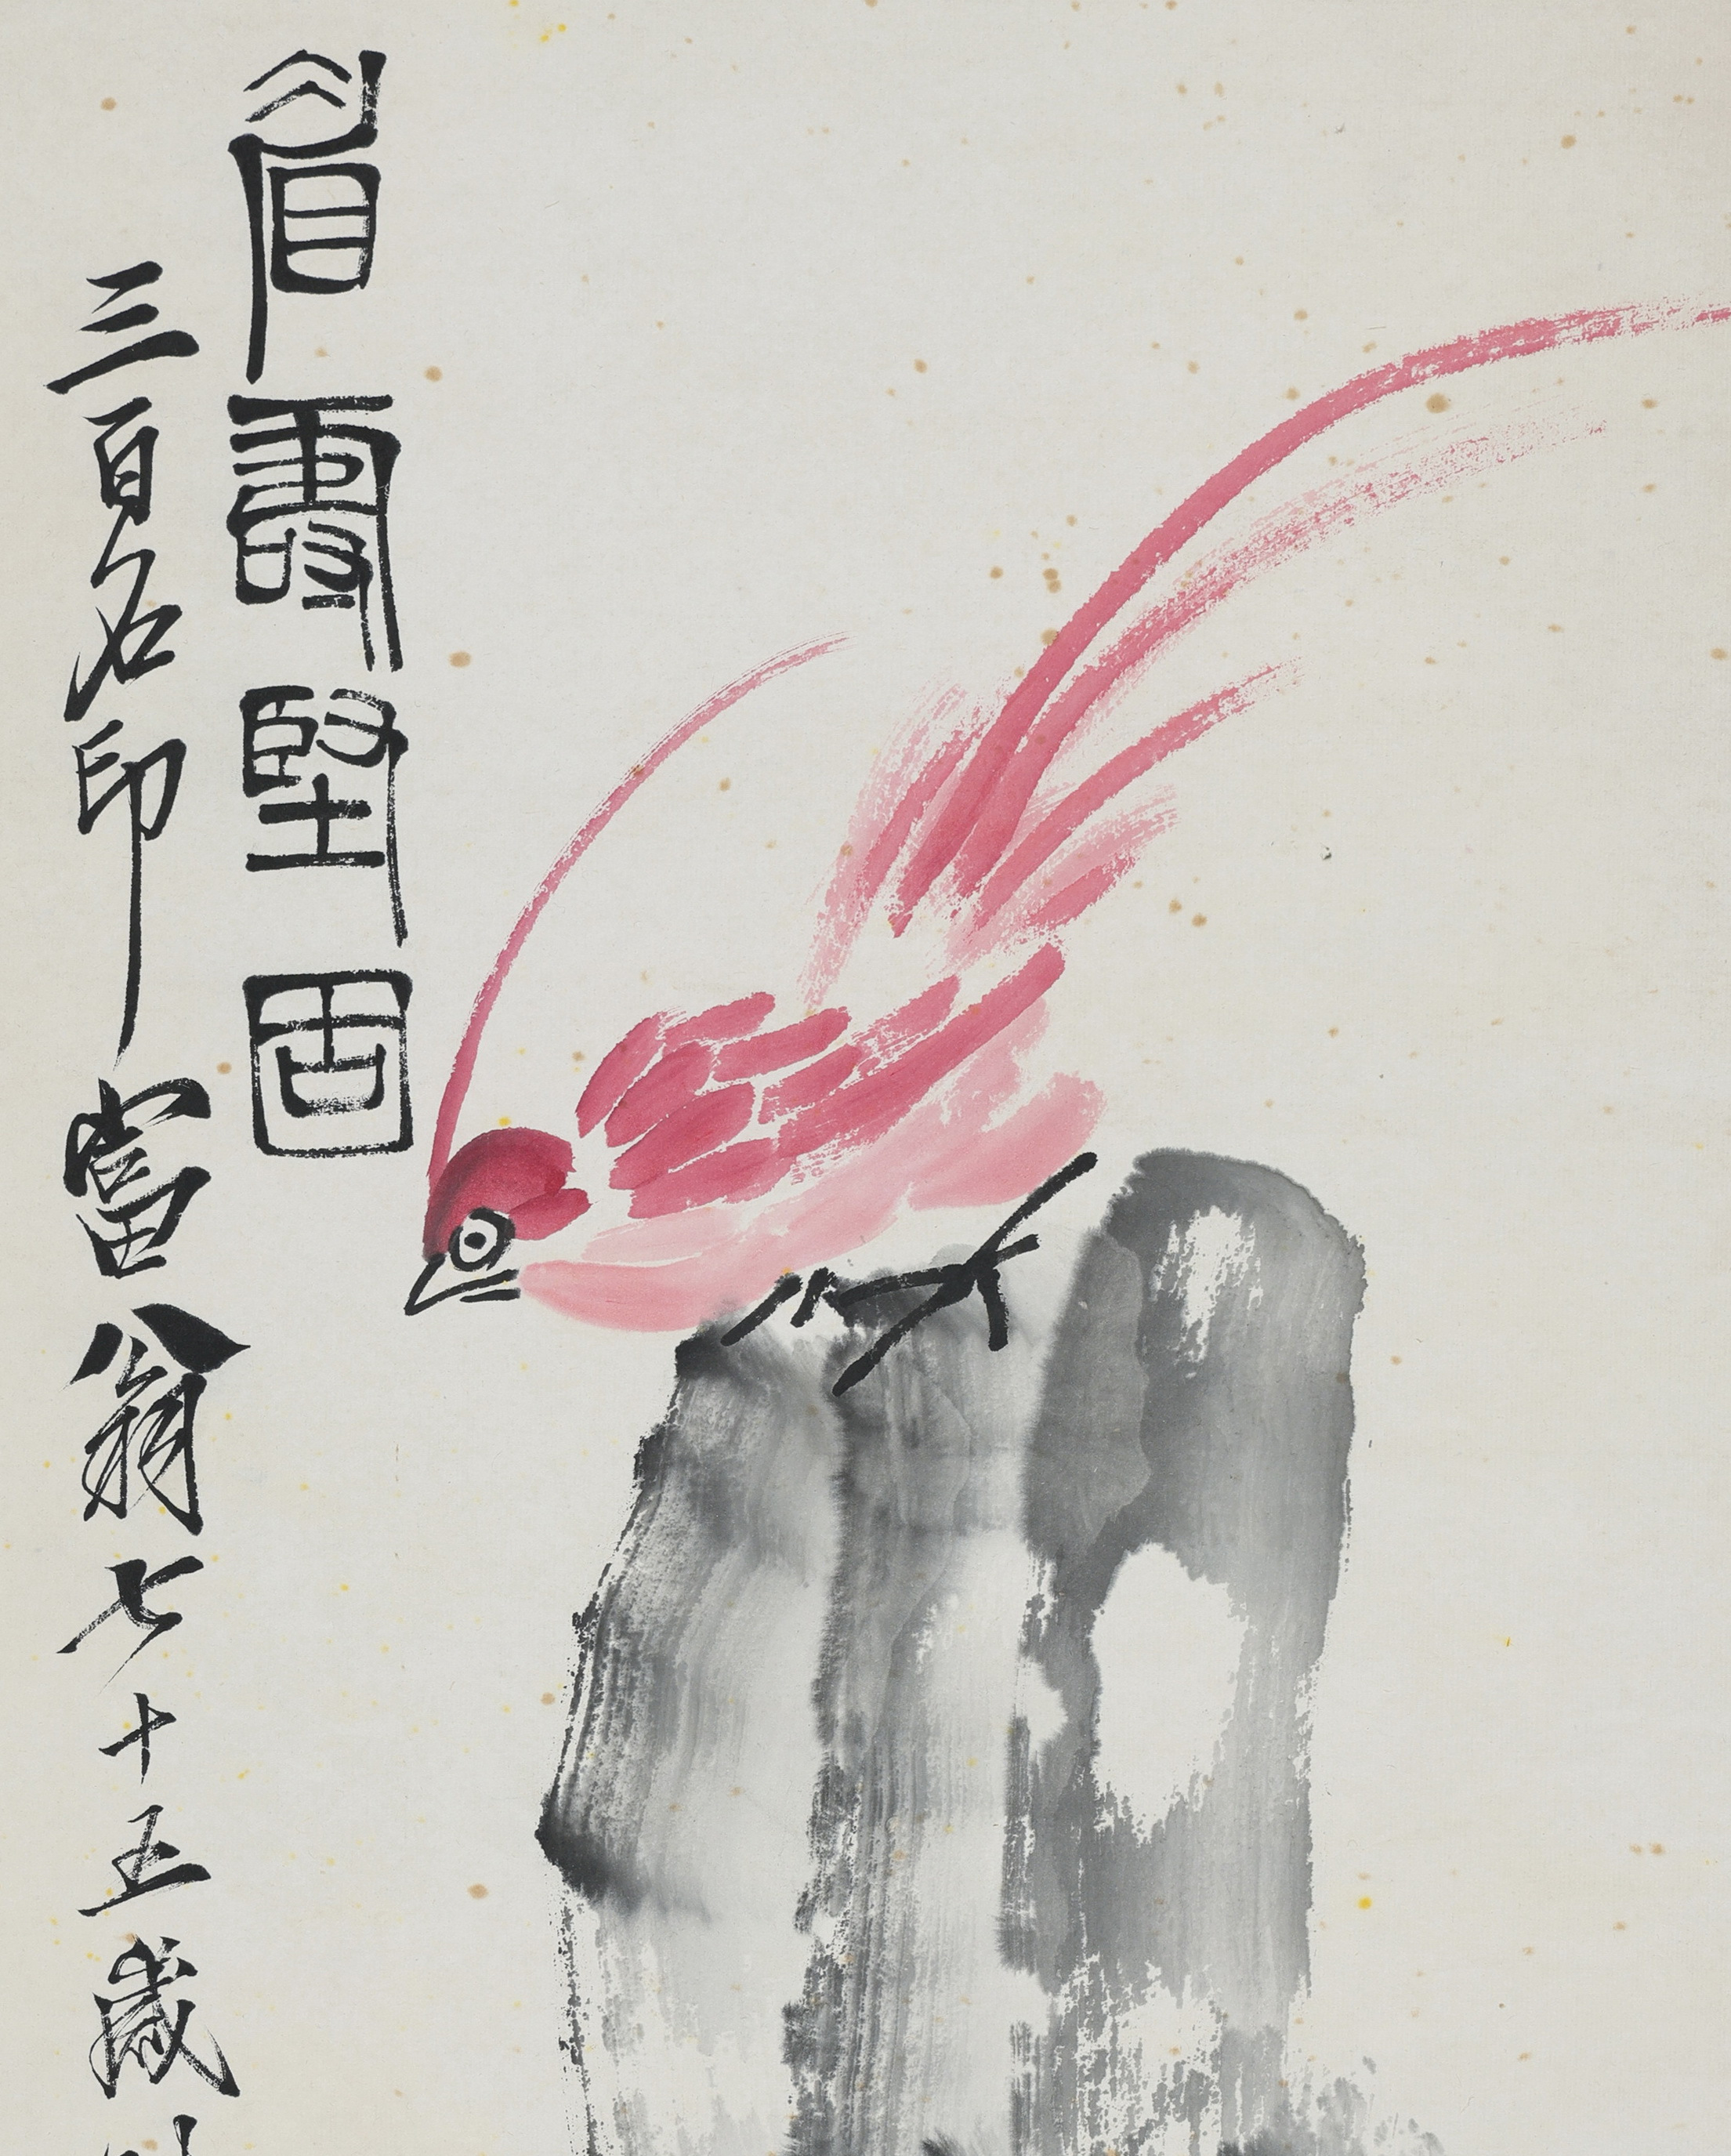 眉壽堅固
三百石印富翁七十五歲時